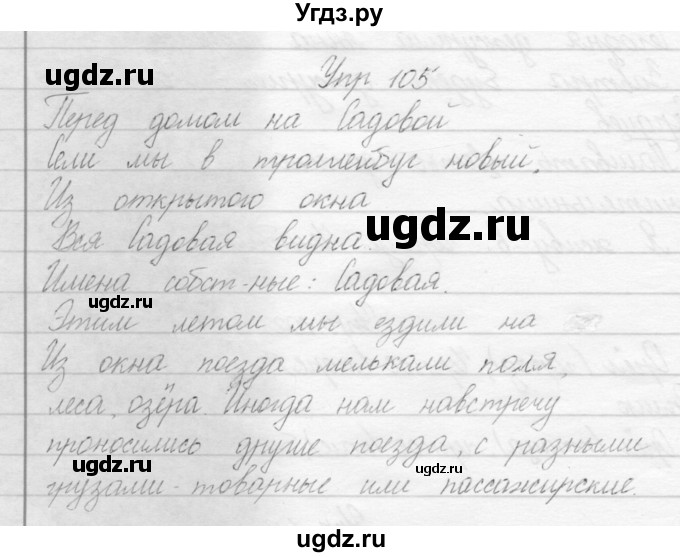 Угдз.ру
ugdz.ru
Упр 105
Перед домом на Садовой
Сели мы в троллейбус новый.
Из открытого окна
Вся Садовая видна.
ugdz.ru
Имена собст-ные: Садовая.
ugdz.ru
Этим летом мы ездили на
Из окна поезда мелькали поля,
леса, озёра. Иногда нам навстречу
проносились другие поезда, с разными
ugdz.ru
ugdz.ru
грузами - товарные или пассажирские.
ugdz.ru